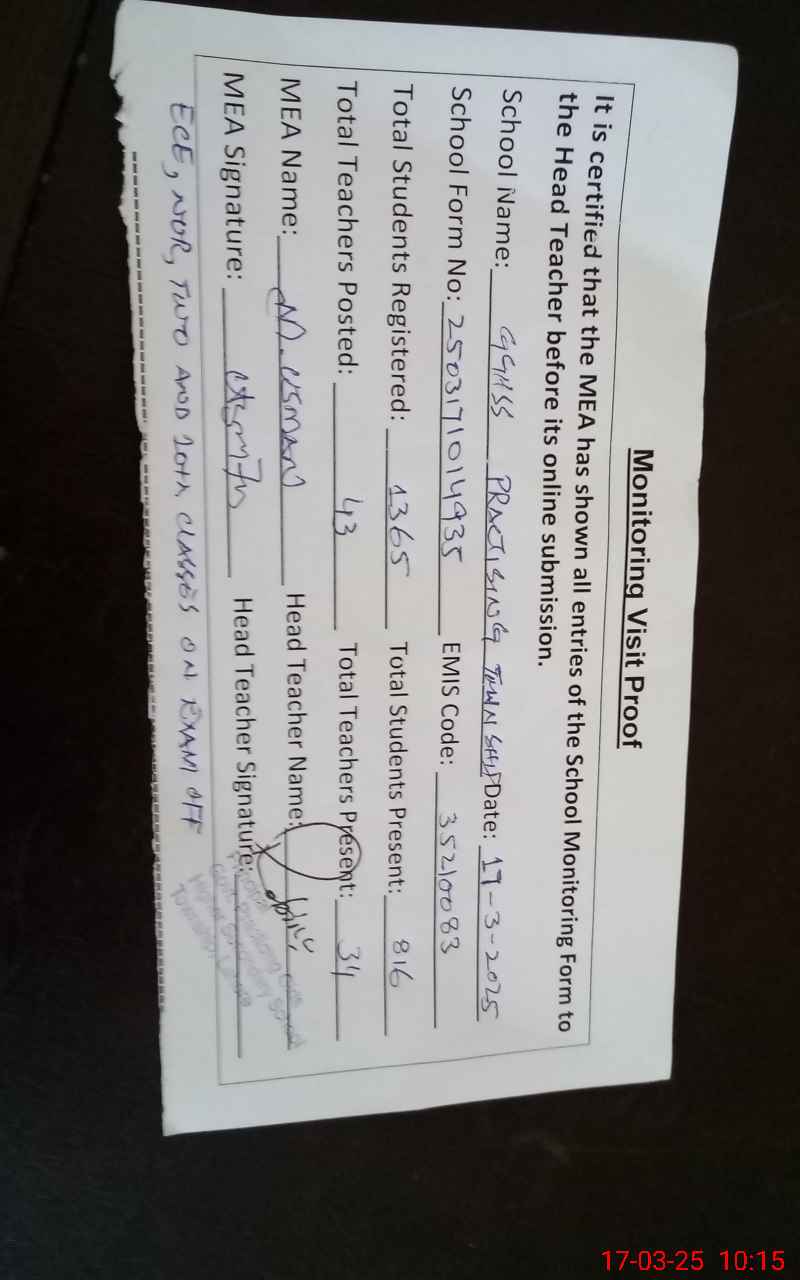 Monitoring Visit Proof
It is certified that the MEA has shown all entries of the School Monitoring Form to
the Head Teacher before its online submission.
School Name: GGHSS PRACTISING TOWN SHIP Date: 17-3-2025
School Form No: 2503171014935 EMIS Code: 35210083
Total Students Registered: 1365 Total Students Present: 816
Total Teachers Posted: 43 Total Teachers Present: 34
MEA Name: M. USMAN Head Teacher Name:
MEA Signature: Head Teacher Signature:
ECE, NUR, TWO AND 10th CLASSES ON EXAM OFF
17-03-25 10:15